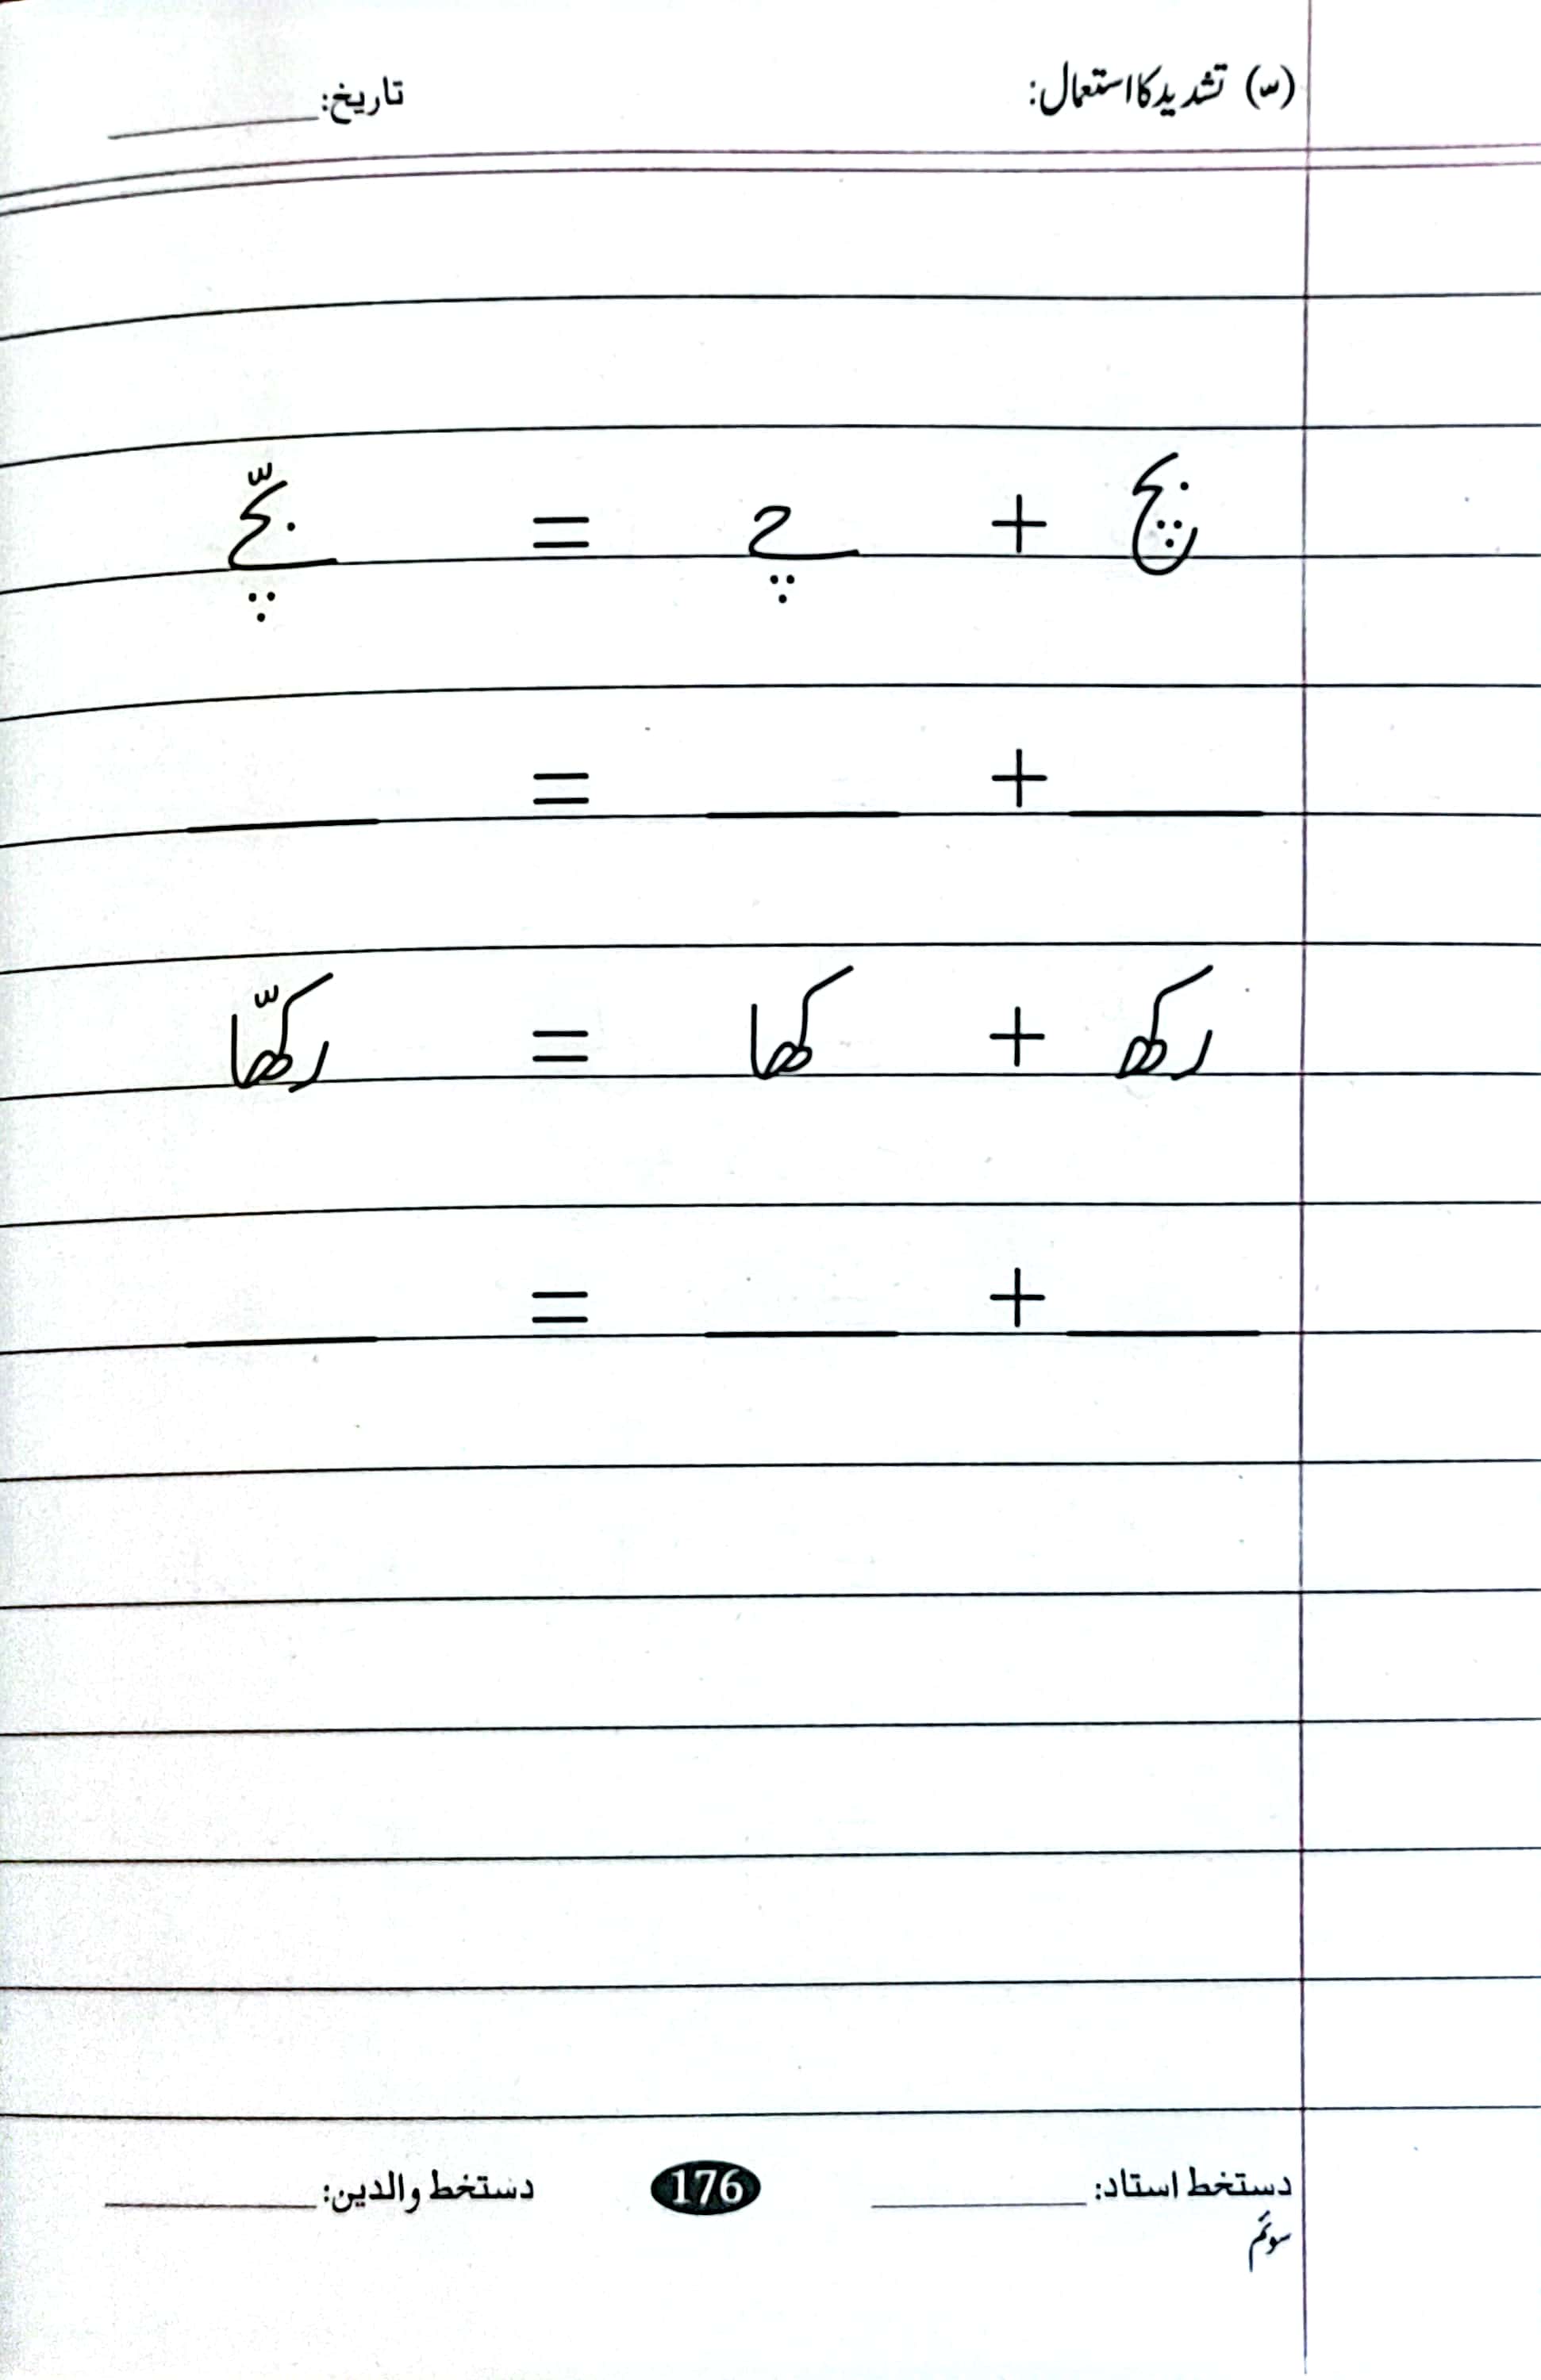 (ّ) تشدید کا استعمال: تاریخ: ______
بچ + چے = بچّے
______ + ______ = ______
رکھ + کھا = رکھّا
______ + ______ = ______
دستخط استاد: ______ 176 دستخط والدین: ______
سوئم